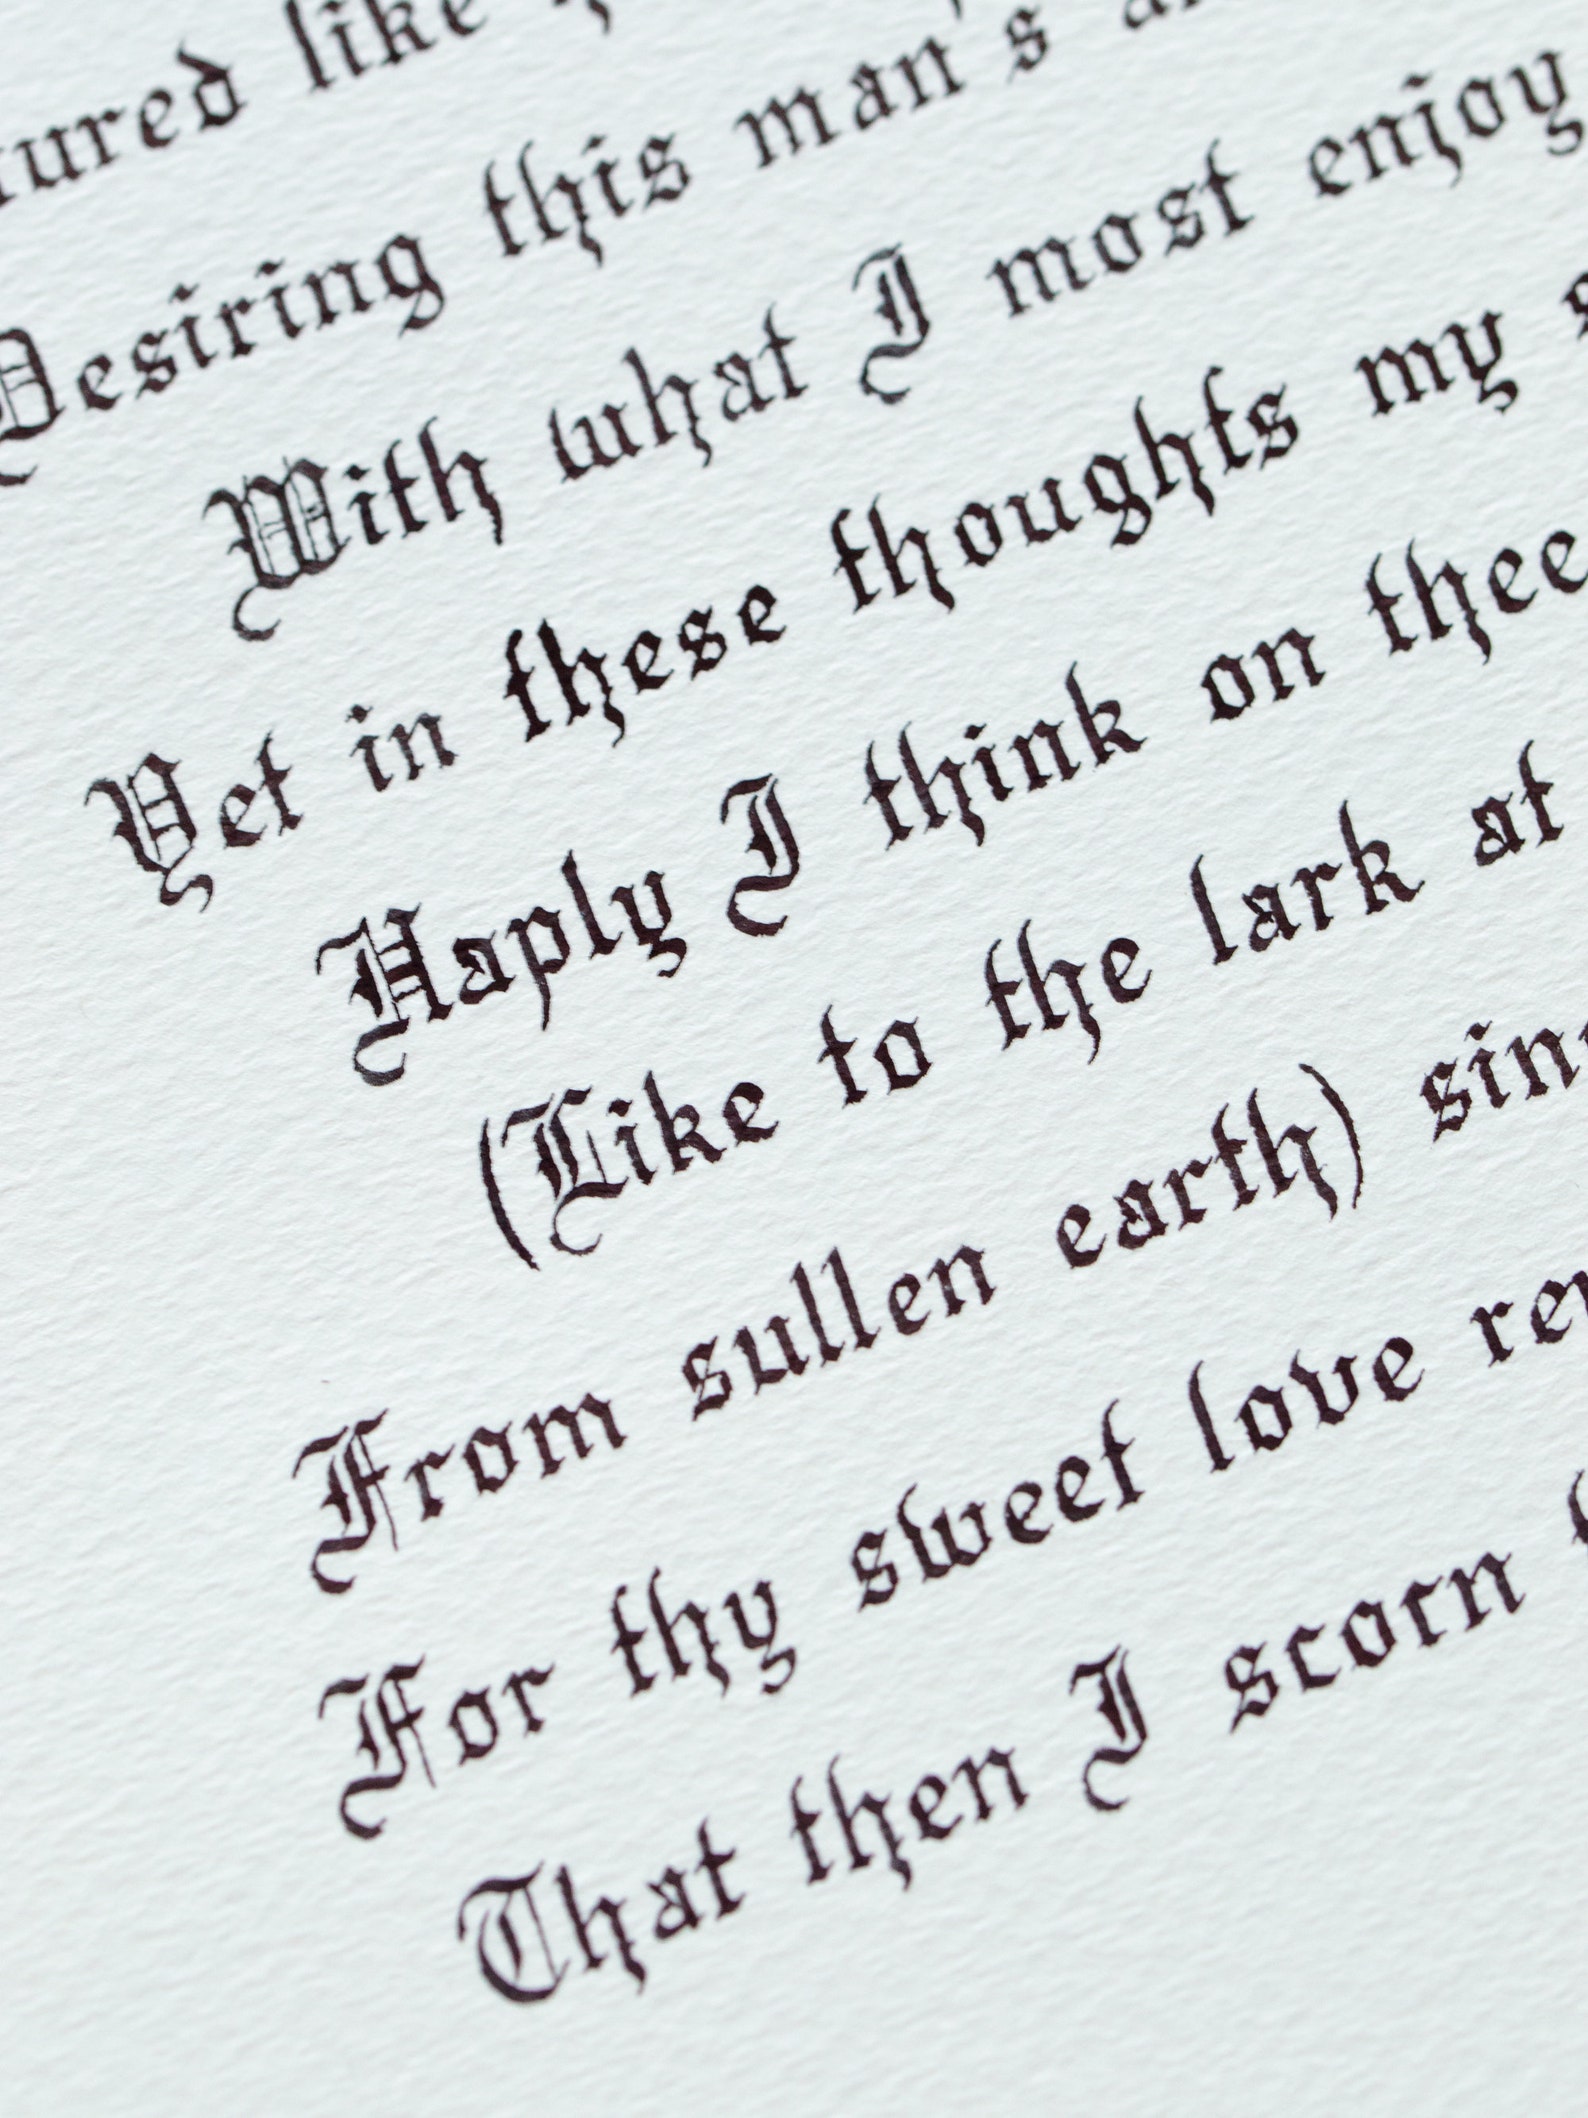 like
Desiring this man's
With what I most enjoy
Yet in these thoughts my
Haply I think on thee
(Like to the lark at
From sullen earth)
For thy sweet love
That then I scorn